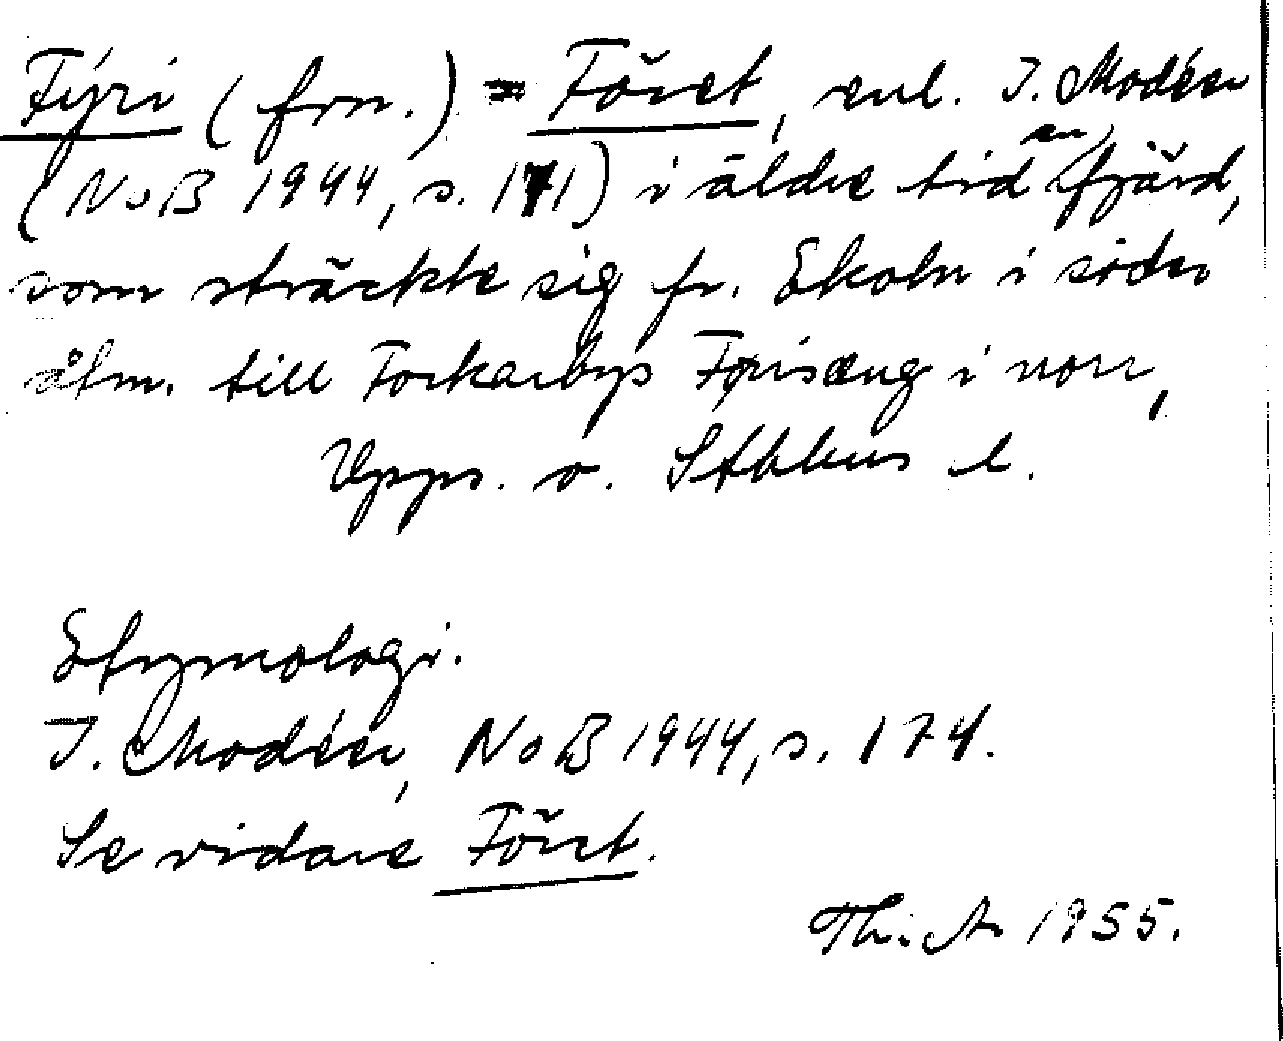 Fýri (frn.) = Föret, enl. I. Modéer
(NoB 1944, s. 171) i äldre tid en fjärd,
som sträckte sig fr. Ekoln i söder
åtm. till Forkarbys Förisæng i norr,
Upps. o. Sthlms l.
Etymologi.
I. Modéer, NoB 1944, s. 174.
Se vidare Föret.
Th. A. 1955.